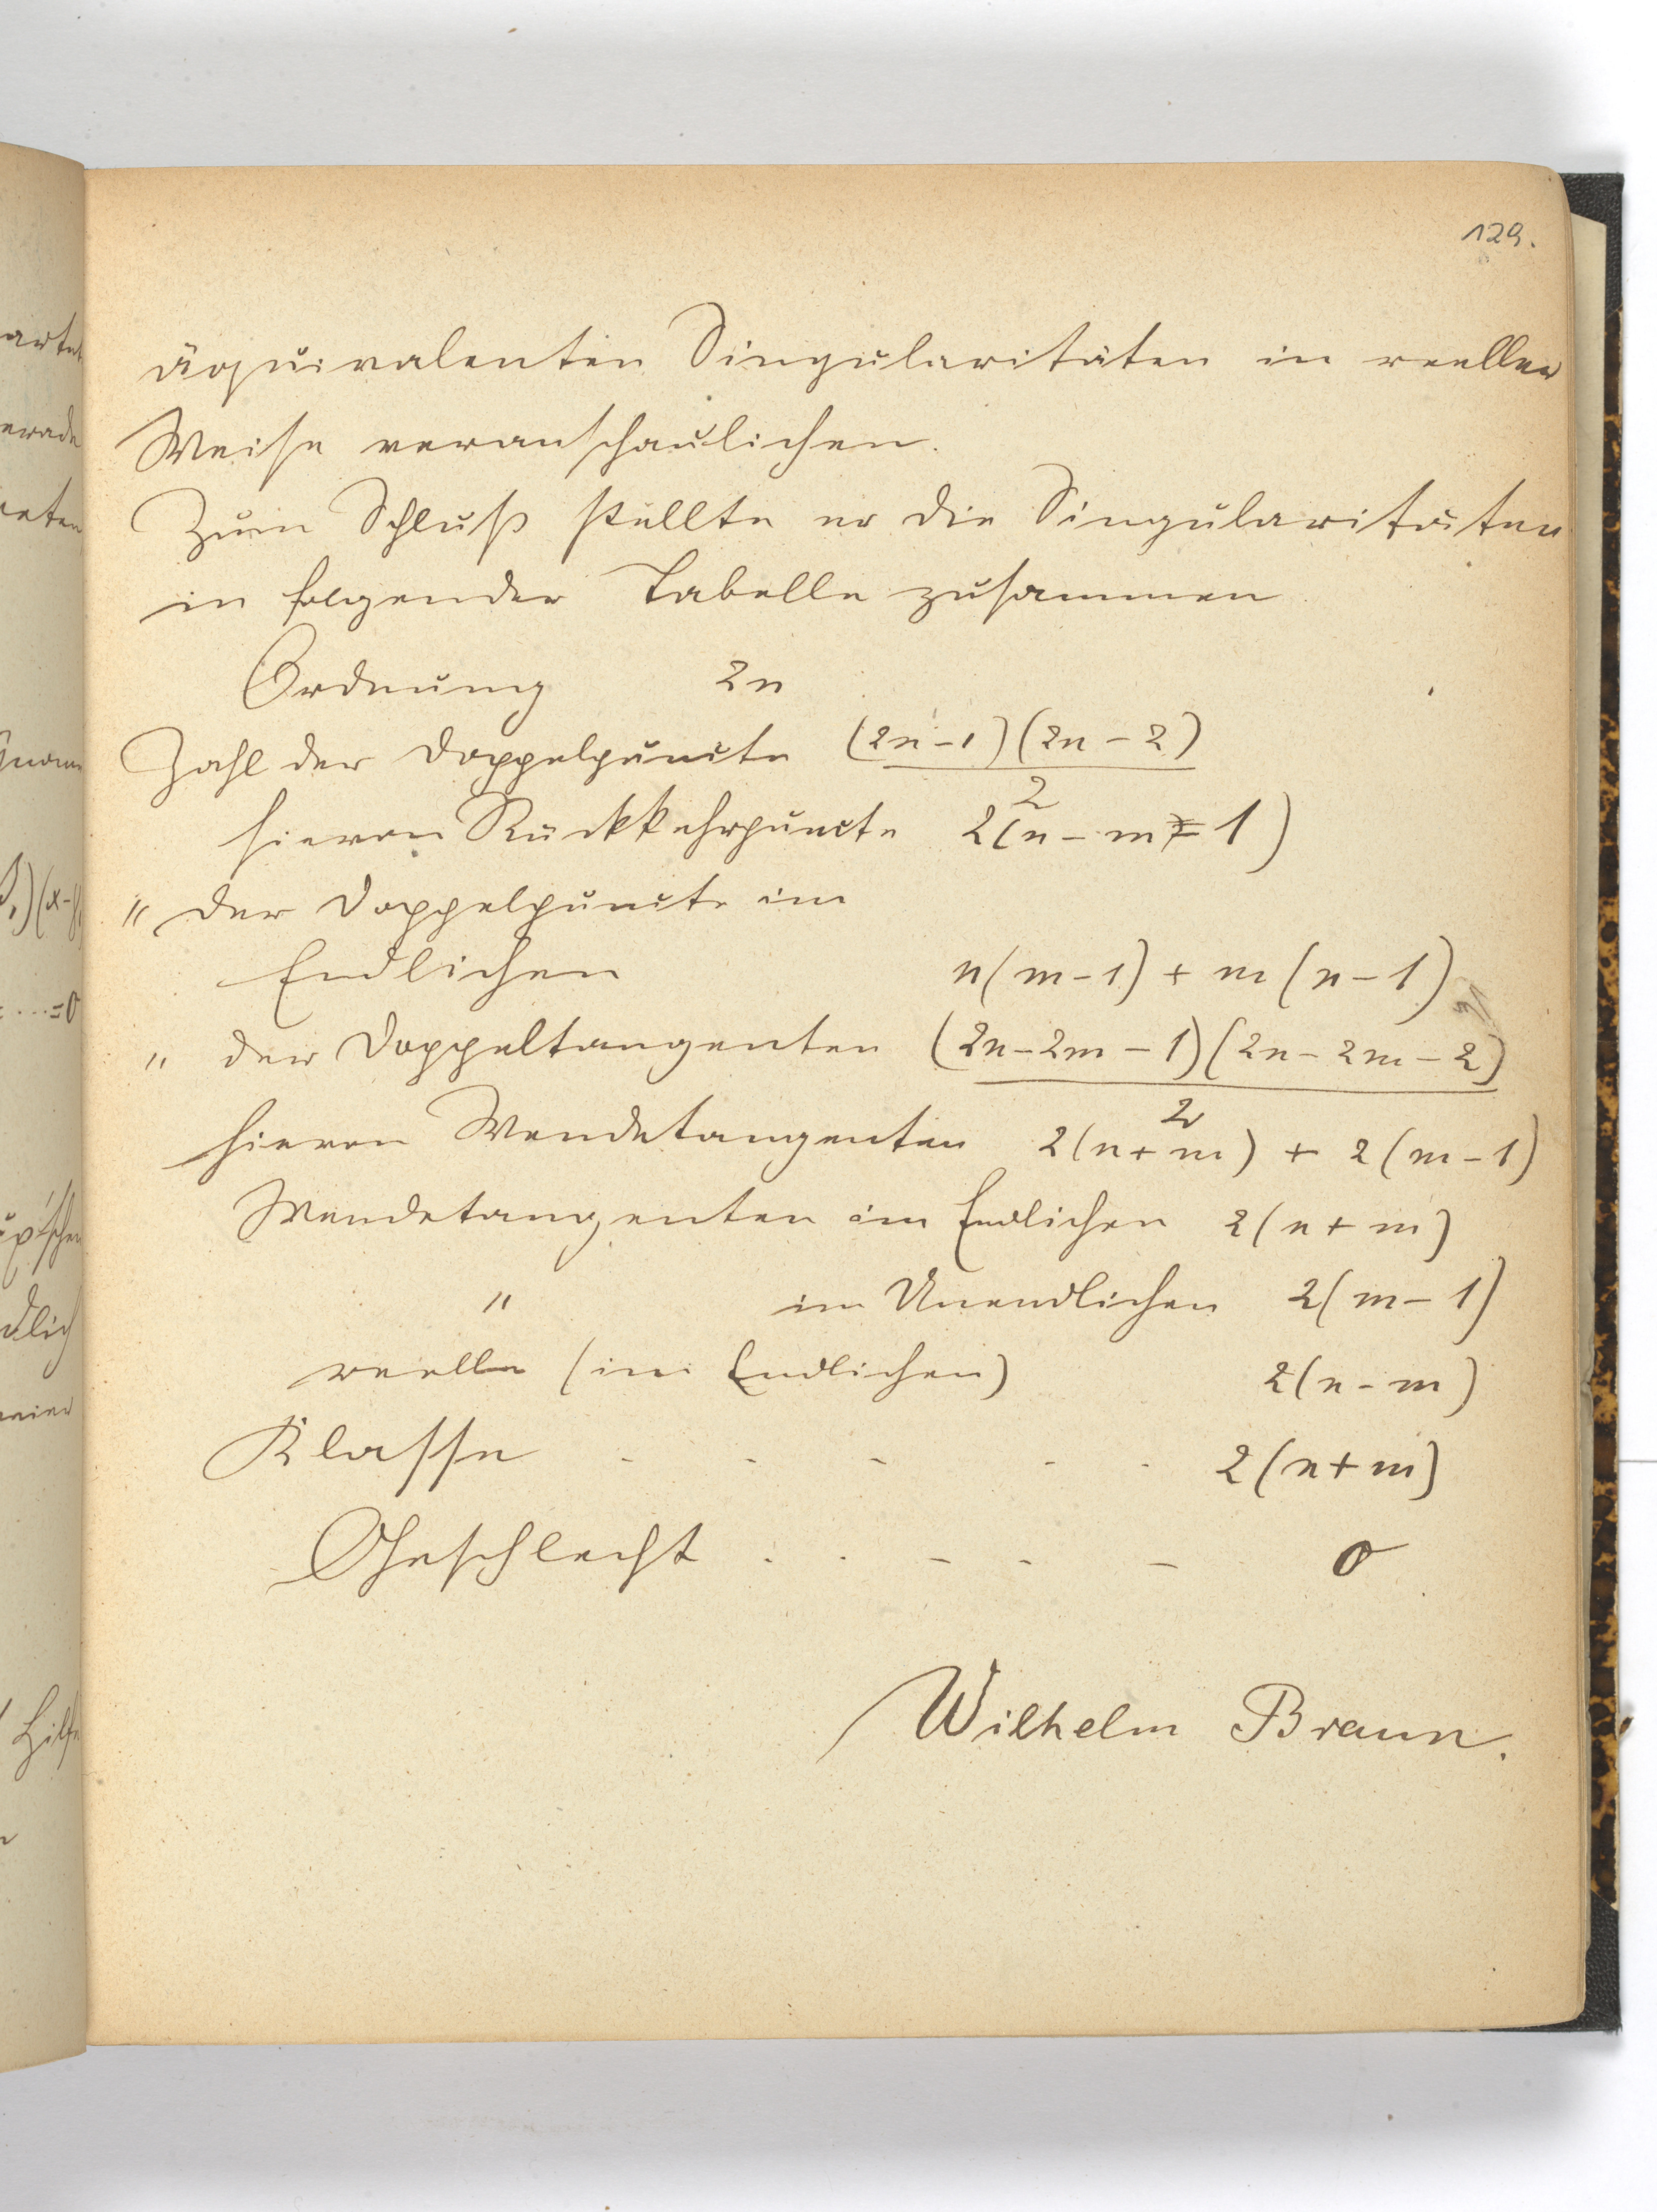 129.
äquivalenten Singularitäten in reeller
Weise veranschaulichen.
Zum Schluß stellte er die Singularitäten
in folgender Tabelle zusammen
Ordnung 2n
Zahl der Doppelpuncte (2n-1)(2n-2)/2
hievon Rückkehrpuncte 2(n-m-1)
" der Doppelpuncte im
Endlichen n(m-1) + m(n-1)
" der Doppeltangenten (2n-2m-1)(2n-2m-2)/2
hievon Wendetangenten 2(n+m) + 2(m-1)
Wendetangenten im Endlichen 2(n+m)
" im Unendlichen 2(m-1)
reelle (im Endlichen) 2(n-m)
Klasse - - - - - 2(n+m)
Geschlecht . . - - - 0
Wilhelm Braun.